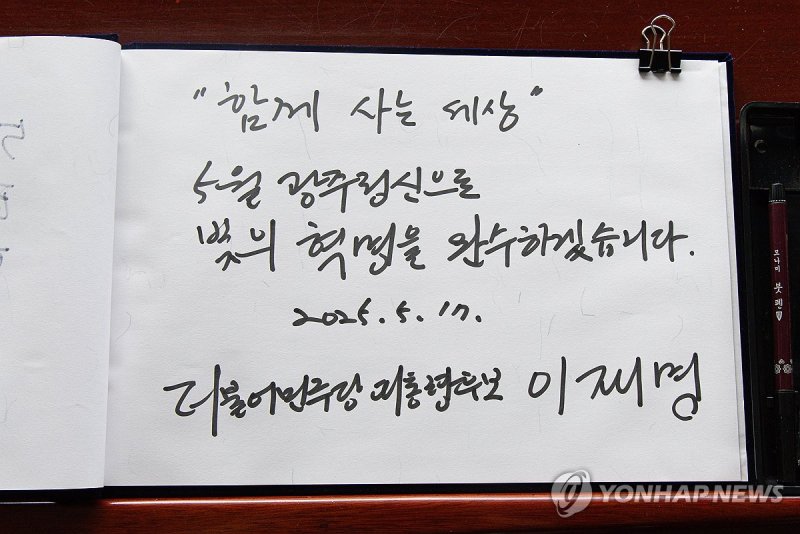 "함께 사는 세상"
5월 광주정신으로
빛의 혁명을 완수하겠습니다.
2025. 5. 17.
더불어민주당 대통령후보 이재명
모나미 붓펜
YONHAPNEWS